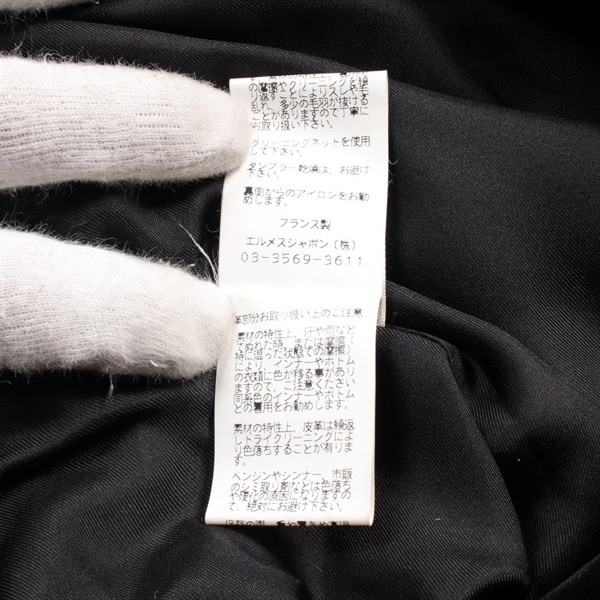 の摩擦やクリーニングを繰
り返すことによりスレや毛
乱れ、多少の毛羽が抜ける
ことがありますので丁寧に
お取り扱い下さい。
クリーニングネットを使用
して下さい。
タンブラー乾燥は、お避け
下さい。
裏側からのアイロンをお勧
めします。
フランス製
エルメスジャポン(株)
03-3569-3611
革部分お取り扱い上のご注意
素材の特性上、汗や雨など
でぬれた時、または摩擦(
特に湿った状態での摩擦)
により、インナーやボトム
の衣類に色が移る事があり
ますので、ご注意ください
同系色のインナーやボトム
との着用をお勧めします。
素材の特性上、皮革は繰返
しドライクリーニングによ
り色落ちすることが有りま
す。
ベンジンやシンナー、市販
のシミ取り剤などは色落ち
や硬化の原因になりますの
で、絶対にお避け下さい。